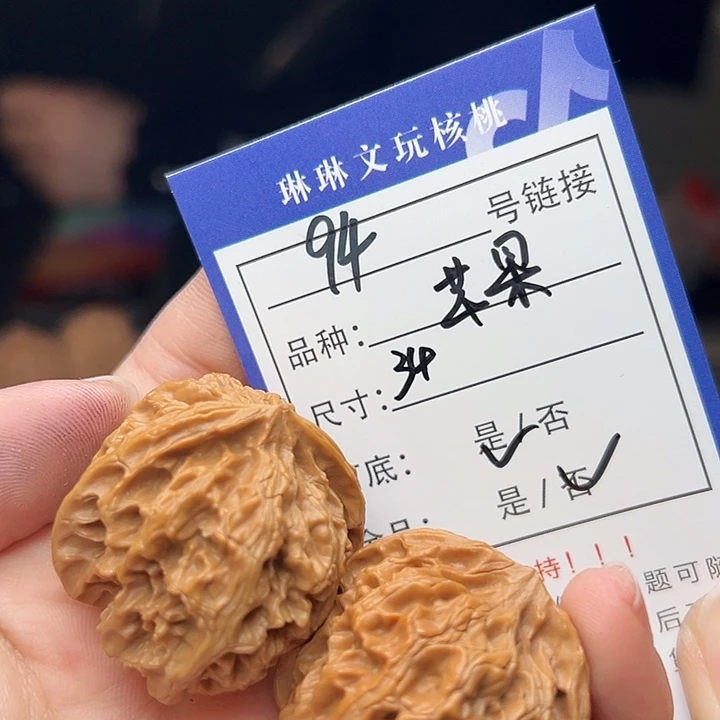 琳琳文玩核桃
94 号链接
品种： 苹果
尺寸： 34
底： 是/否
品： 是/否
持！！！
题可
后